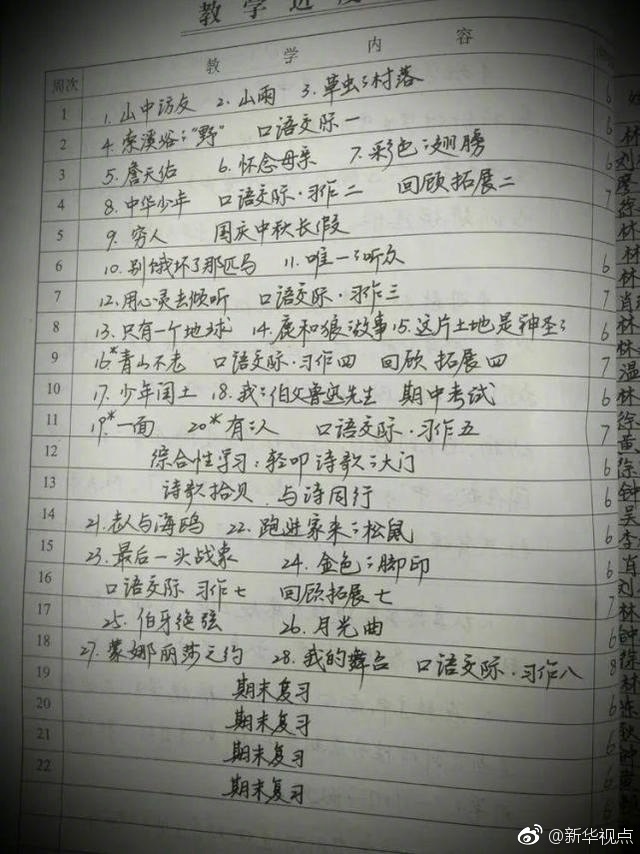 教学进度
周次 教学内容
1 1. 山中访友 2. 山雨 3. 草虫的村落 6
2 4. 索溪峪的"野" 口语交际一 6 林
3 5. 詹天佑 6. 怀念母亲 7. 彩色的翅膀 6 刘
4 8. 中华少年 口语交际·习作二 回顾拓展二 7 徐
5 9. 穷人 国庆中秋长假 林
6 10. 别饿坏了那匹马 11. 唯一的听众 6 林
7 12. 用心灵去倾听 口语交际·习作三 7 肖
8 13. 只有一个地球 14. 鹿和狼的故事 15. 这片土地是神圣的 6 林
9 16*青山不老 口语交际·习作四 回顾拓展四 7 温
10 17. 少年闰土 18. 我的伯父鲁迅先生 期中考试 6 林
11 19*一面 20*有的人 口语交际·习作五 7 徐 黄
12 综合性学习：轻叩诗歌的大门 6 徐
13 诗歌拾贝 与诗同行 6 钟
14 21. 老人与海鸥 22. 跑进家来的松鼠 6 吴
15 23. 最后一头战象 24. 金色的脚印 6 李 肖
16 口语交际 习作七 回顾拓展七 7 刘
17 25. 伯牙绝弦 26. 月光曲 6 林 钟
18 27. 蒙娜丽莎之约 28. 我的舞台 口语交际·习作八 8 徐
19 期末复习 6 林
20 期末复习 6
21 期末复习 6 钟
22 期末复习 6
@新华视点